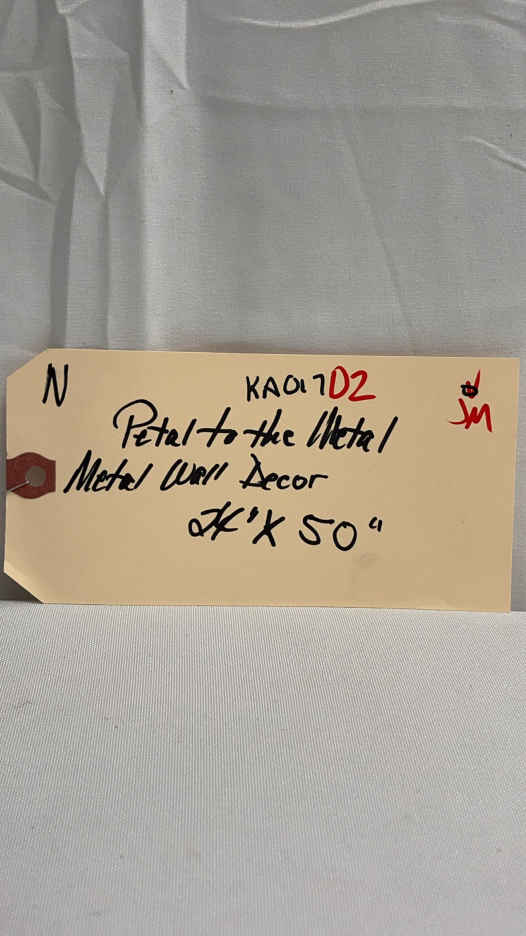 N KA017D2
JM
Petal to the Metal
Metal Wall Decor
24" X 50"